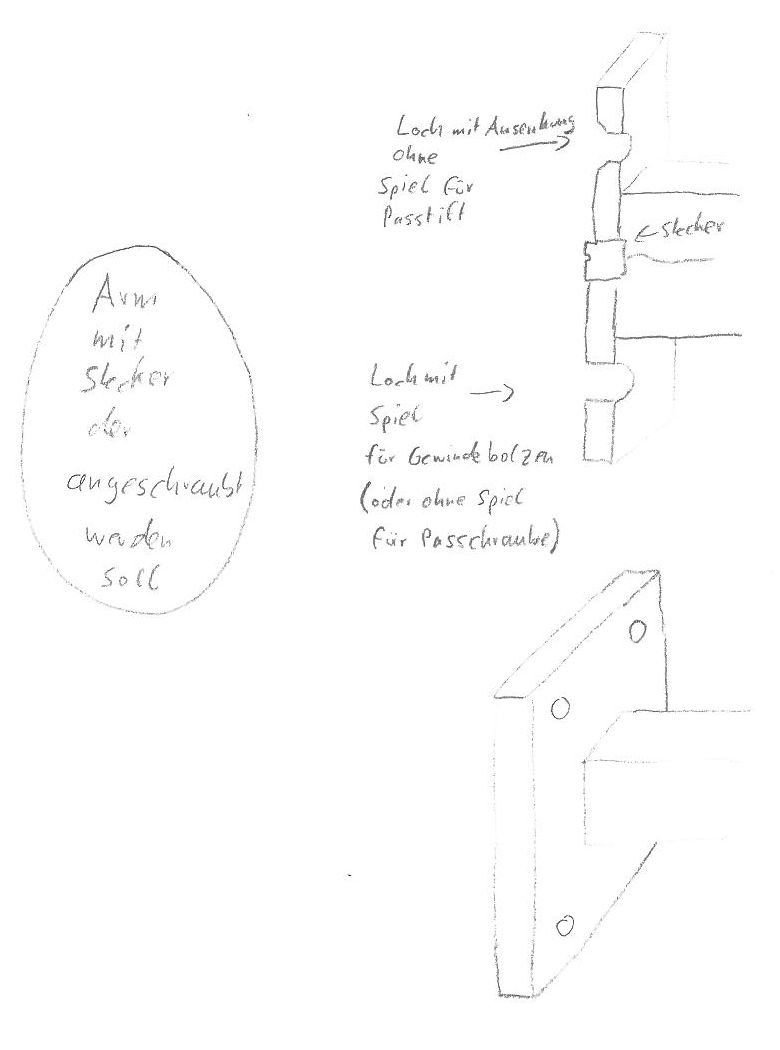 Loch mit Ansenkung
ohne
Spiel für
Passtift
← Stecher
Arm
mit
Stecker
der
angeschraubt
werden
soll
Loch mit
Spiel
für Gewindebolzen
(oder ohne Spiel
für Passchraube)